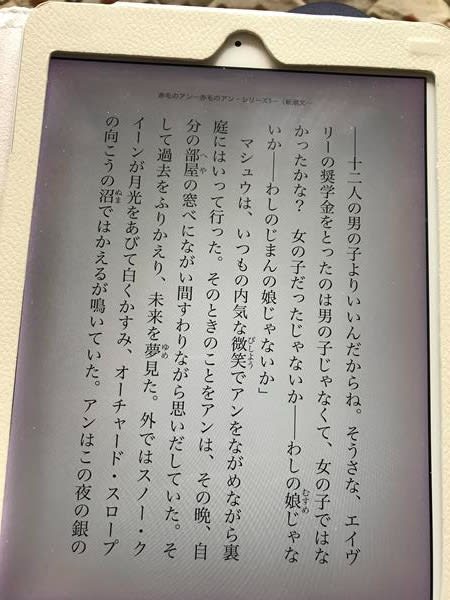 赤毛のアン―赤毛のアン・シリーズ1―(新潮文…
――十二人の男の子よりいいんだからね。そうさな、エイヴ
リーの奨学金をとったのは男の子じゃなくて、女の子ではな
かったかな? 女の子だったじゃないか――わしの娘じゃな
いか――わしのじまんの娘じゃないか」
マシュウは、いつもの内気な微笑でアンをながめながら裏
庭にはいって行った。そのときのことをアンは、その晩、自
分の部屋の窓べにながい間すわりながら思いだしていた。そ
して過去をふりかえり、未来を夢見た。外ではスノー・ク
イーンが月光をあびて白くかすみ、オーチャード・スロープ
の向こうの沼ではかえるが鳴いていた。アンはこの夜の銀の